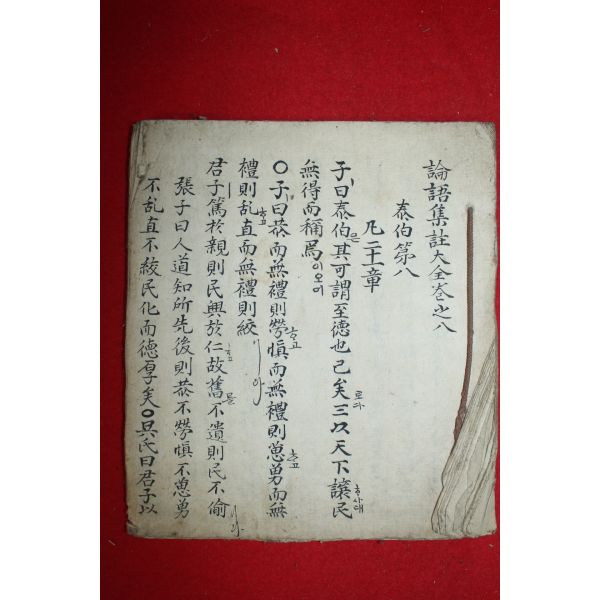 論語集註大全卷之八
泰伯第八
凡二十一章
子曰泰伯은其可謂至德也已矣로다三以天下讓호사대民
無得而稱焉이오여
〇子曰恭而無禮則勞하고愼而無禮則葸하고勇而無
禮則乱하고直而無禮則絞이니라
君子篤於親則民興於仁하고故舊를不遺則民不偷이니라
張子曰人道知所先後則恭不勞愼不葸勇
不乱直不絞民化而德厚矣〇吳氏曰君子以